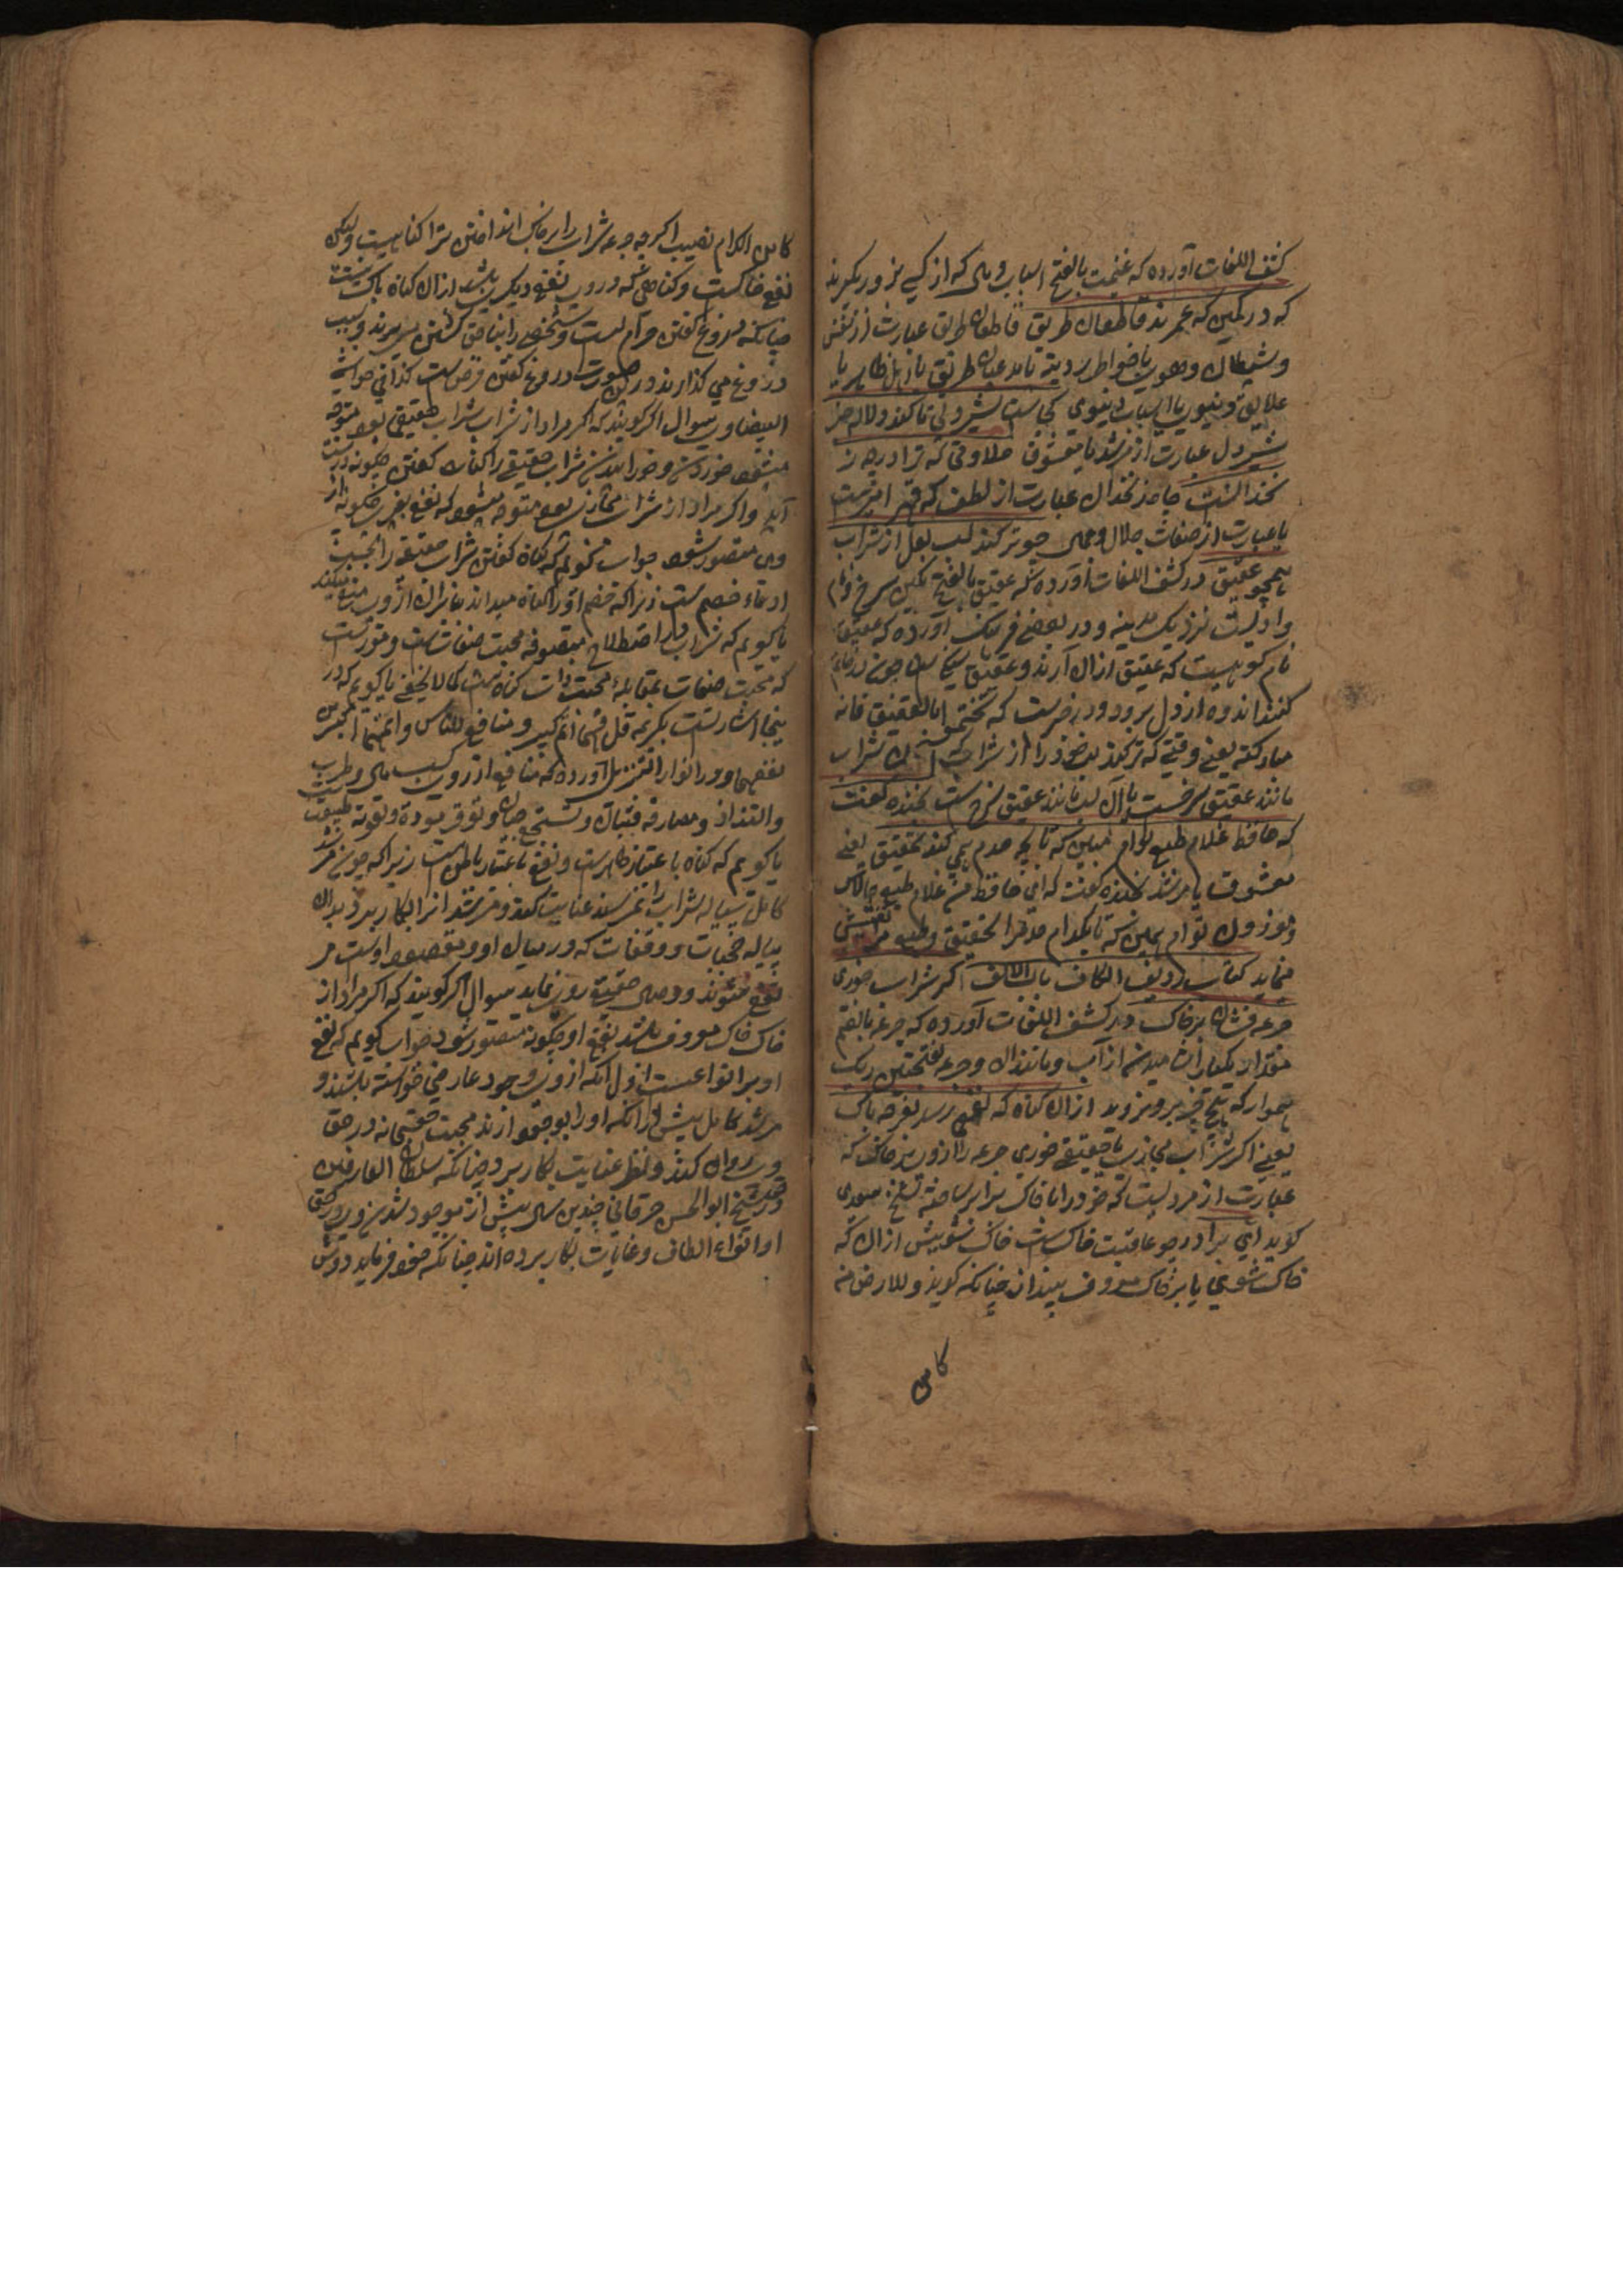 کشف اللغات آورده که غنیمت بالفتح اسباب و مالی که از کسی بزور بگیرند
که در کمین که عمرند قاطعان طریق قاطعان طریق عبارت از نفس
و شیطان و هوا یا خواطر ردیه یا مدعیان طریق یا اهل ظاهر یا
علایق دنیوی یا اسباب دنیوی کجاست شیردلی تا کند و لا حذر
شیردل عبارت از مرشد یا معشوق حلاوتی که ترا در چه ز
نخدانست چاه زنخدان عبارت از لطف که قهر آمیزست
یا عبارت از صفات جلال و جمال چو تر کند لب لعل از شراب
همچو عقیق در کشف اللغات آورده که عقیق بالفتح نگین سرخ فام
و وادیست نزدیک مدینه و در بعضی فرهنگ آورده که عقیق
نام کوهیست که عقیق ازان آرند و عقیق چون در خاتم
کنند اندوه از دل برود و در خبرست که تختموا بالعقیق فانه
مبارکة یعنی وقتی که تر کند لب خود را از شراب که آن شراب
مانند عقیق سرخست یا آن لب مانند عقیق سرخ ست بخنده گفت
که حافظ غلام طبع توام ببین که تا بچه حدم همی کند تحقیق یعنی
معشوق یا مرشد بخنده گفت که ای حافظ من غلام طبع چالاک
و موزون توام ببین که تا بکدام حد مرا تحقیق و طبع من تفتیش
مینماید کتاب ردیف الکاف باب الالف اگر شراب خوری
جرعه فشان بر خاک در کشف اللغات آورده که جرعه بالضم
مقدار یکبار آشامیدن از آب و مانند آن و جرعه بفتحتین ریگ
هموار که هیچ چیز برو نروید ازان گناه که نفعی رسد بغیر چه باک
یعنی اگر شراب مجازی یا حقیقی خوری جرعه را ازو بر خاک که
عبارت از مردیست که خود را با خاک برابر ساخته شیخ سعدی
گوید ای برادر چو عاقبت خاک ست خاک شو پیش ازان که
خاک شوی یا بر خاک معروف بینداز چنانکه گویند وللارض من
کاس
کاس الکرام نصیب اگرچه جرعه شراب را بر خاک انداختن ترا گناهیست ولیکن
نفع خاکست و گناهی که در وی نفع دیگری باشد ازان گناه باک نیست
چنانکه دروغ گفتن حرام است و شخصی را بناحق کشتن میبرند و بسبب
دروغ می گذارند درین صورت دروغ گفتن فرض ست کذا فی حواشی
البیضاوی سوال اگر گویند که اگر مراد از شراب شراب حقیقی بود
خوردن و خورانیدن شراب حقیقی را گناه گفتن چگونه درست
آید و اگر مراد از شراب مجازی بود متوجه میشود که نفع بغیر چگونه از
وی متصور شود جواب گویم که گناه گفتن شراب حقیقی را بحسب
ادعاء خصم ست زیرا که خصم او را گناه میداند بنابران ازو منع میکند
یا گویم که شراب در اصطلاح متصوفه محبت صفات ست و مقررست
که محبت صفات بمقابله محبت ذات گناه ست کما لا یخفی یا گویم که در
ینجا اشارتست بکریمه قل فیهما اثم کبیر و منافع للناس واثمهما اکبر من
نفعهما و در انوار التنزیل آورده که منافع از روی کسب مال و طرب
والتذاذ و مصادقه فتیان و تشجیع جبان و توفر مروت و تقویه طبیعت
یا گویم که گناه باعتبار ظاهرست و نفع باعتبار باطن ست زیرا که چون مرشد
کامل پیاله شراب را بمرید عنایت کند و مرید آنرا بکار برد بدان
پیاله حجابات و وقفات که در میان او و مقصود اوست مر
تفع میشوند و وصال حقیقی رو نماید سوال اگر گویند که اگر مراد از
خاک خاک معروف باشد نفع او چگونه متصور شود جواب گویم که نفع
او بر انواعست اول آنکه ازو وجود عارضی خواسته باشند و
مرشد کامل پیش از آنکه او را بوجود آرند محبت حقیقیانه در حق
وی روان کند و نظر عنایت بکار برد چنانکه سلطان العارفین
در حق شیخ ابو الحسن خرقانی چندین سال پیش از موجود شدن وی در حق
او انواع الطاف و عنایات بکار برده اند چنانکه خود فرماید دوش